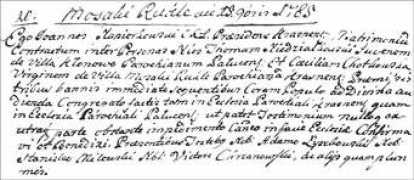 Mosaki Rutle
Ego Joannes Napiorkowski Præsidens Krasnens. Matrimonium
Contractum inter Personas Thomam Niedzialkowski Juvenem
de Villa Klonowo Parochianum et Cæciliam Chotkowska
Virginem de Villa Mosaki Rutle Parochiana Krasnens. Præmissis
tribus bannis immediate sequentibus Coram Populo ad Divina au
dienda Congregato factis tam in Ecclesia Parochiali Krasnens. quam
in Ecclesia Parochiali ut patet Testimonium nullog. ex
utraq. parte obstante impedimento in facie Ecclesiæ Confirma
vi et Benedixi. Præsentibus Testibus Nob. Adamo Nob.
Stanislao Nob. Victore et aliis quam pluri
mis.